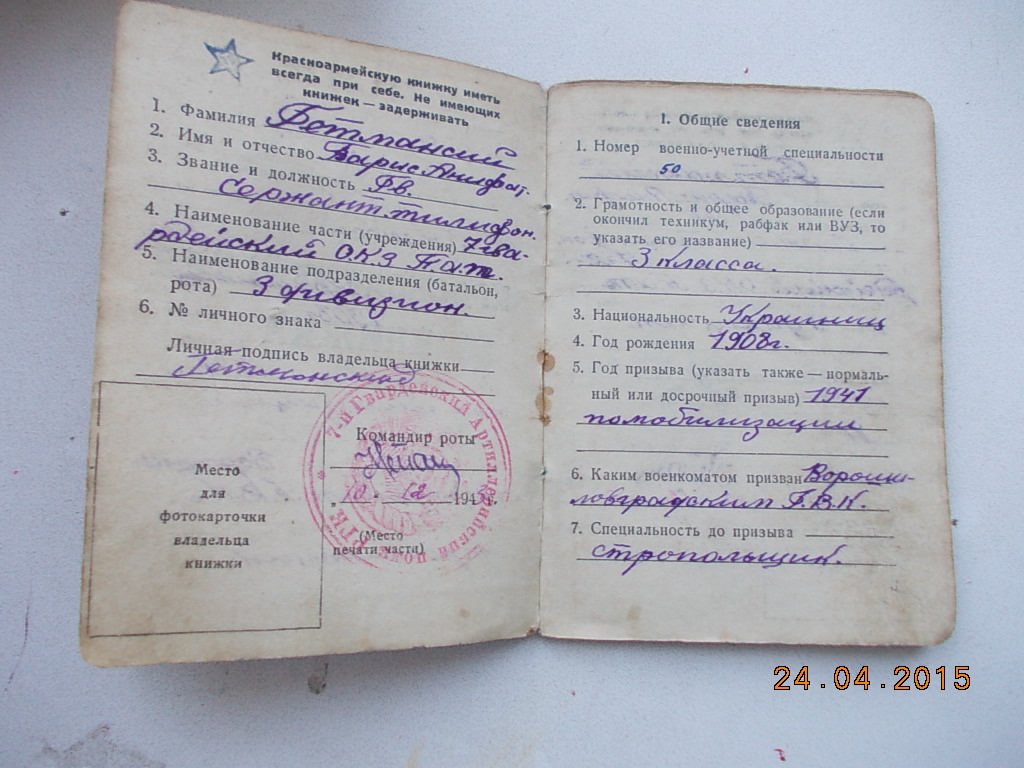 Красноармейскую книжку иметь
всегда при себе. Не имеющих
книжек — задерживать
1. Фамилия Гетманский
2. Имя и отчество Барис Анифат.
3. Звание и должность Гв.
сержант тилифон.
4. Наименование части (учреждения) 7 гва-
рдейский
5. Наименование подразделения (батальон,
рота) 3 дивизион.
6. № личного знака
Личная подпись владельца книжки
Гетманский
Место
для
фотокарточки
владельца
книжки
Командир роты
10 12 194
(Место
печати части)
7-й Гвардейский Артиллерийский полк
1. Общие сведения
1. Номер военно-учетной специальности
50
2. Грамотность и общее образование (если
окончил техникум, рабфак или ВУЗ, то
указать его название)
3 класса.
3. Национальность Украинец
4. Год рождения 1908г.
5. Год призыва (указать также — нормаль-
ный или досрочный призыв) 1941
помобилизации
6. Каким военкоматом призван Вороши-
ловградским Г.В.К.
7. Специальность до призыва
стропольщик.
24.04.2015